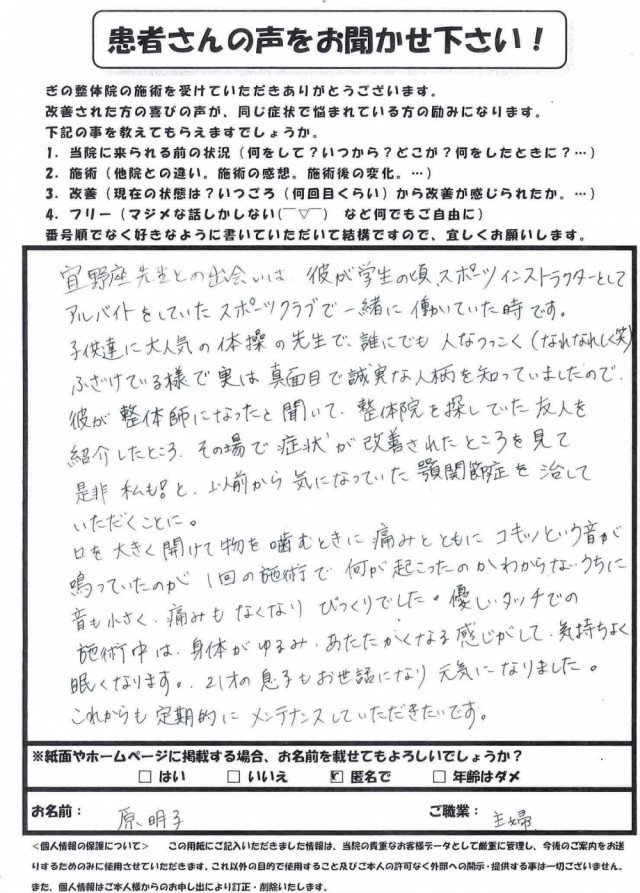 患者さんの声をお聞かせ下さい！
ぎの整体院の施術を受けていただきありがとうございます。
改善された方の喜びの声が、同じ症状で悩まれている方の励みになります。
下記の事を教えてもらえますでしょうか。
1．当院に来られる前の状況（何をして？いつから？どこが？何をしたときに？…）
2．施術（他院との違い。施術の感想。施術後の変化。…）
3．改善（現在の状態は？いつごろ（何回目くらい）から改善が感じられたか。…）
4．フリー（マジメな話しかしない(￣▽￣)　など何でもご自由に）
番号順でなく好きなように書いていただいて結構ですので、宜しくお願いします。
宜野座先生との出会いは、彼が学生の頃、スポーツインストラクターとして
アルバイトをしていたスポーツクラブで一緒に働いていた時です。
子供達に大人気の体操の先生で、誰にでも人なつっこく（なれなれしく笑）
ふざけている様で実は真面目で誠実な人柄を知っていましたので、
彼が整体師になったと聞いて、整体院を探していた友人を
紹介したところ、その場で症状が改善されたところを見て
是非私も！と、以前から気になっていた顎関節症を治して
いただくことに。
口を大きく開けて物を噛むときに痛みとともにコキッという音が
鳴っていたのが1回の施術で何が起こったのかわからないうちに
音も小さく、痛みもなくなりびっくりでした。優しいタッチでの
施術中は、身体がゆるみ、あたたかくなる感じがして、気持ちよく
眠くなります。21才の息子もお世話になり元気になりました。
これからも定期的にメンテナンスしていただきたいです。
※紙面やホームページに掲載する場合、お名前を載せてもよろしいでしょうか？
□ はい　□ いいえ　☑ 匿名で　□ 年齢はダメ
お名前：　原　明子　ご職業：　主婦
＜個人情報の保護について＞　この用紙にご記入いただきました情報は、当院の貴重なお客様データとして厳重に管理し、今後のご案内をお送
りするためのみに使用させていただきます。これ以外の目的で使用すること及びご本人の許可なく外部への開示・提供する事は一切ございません。
また、個人情報はご本人様からのお申し出により訂正・削除いたします。